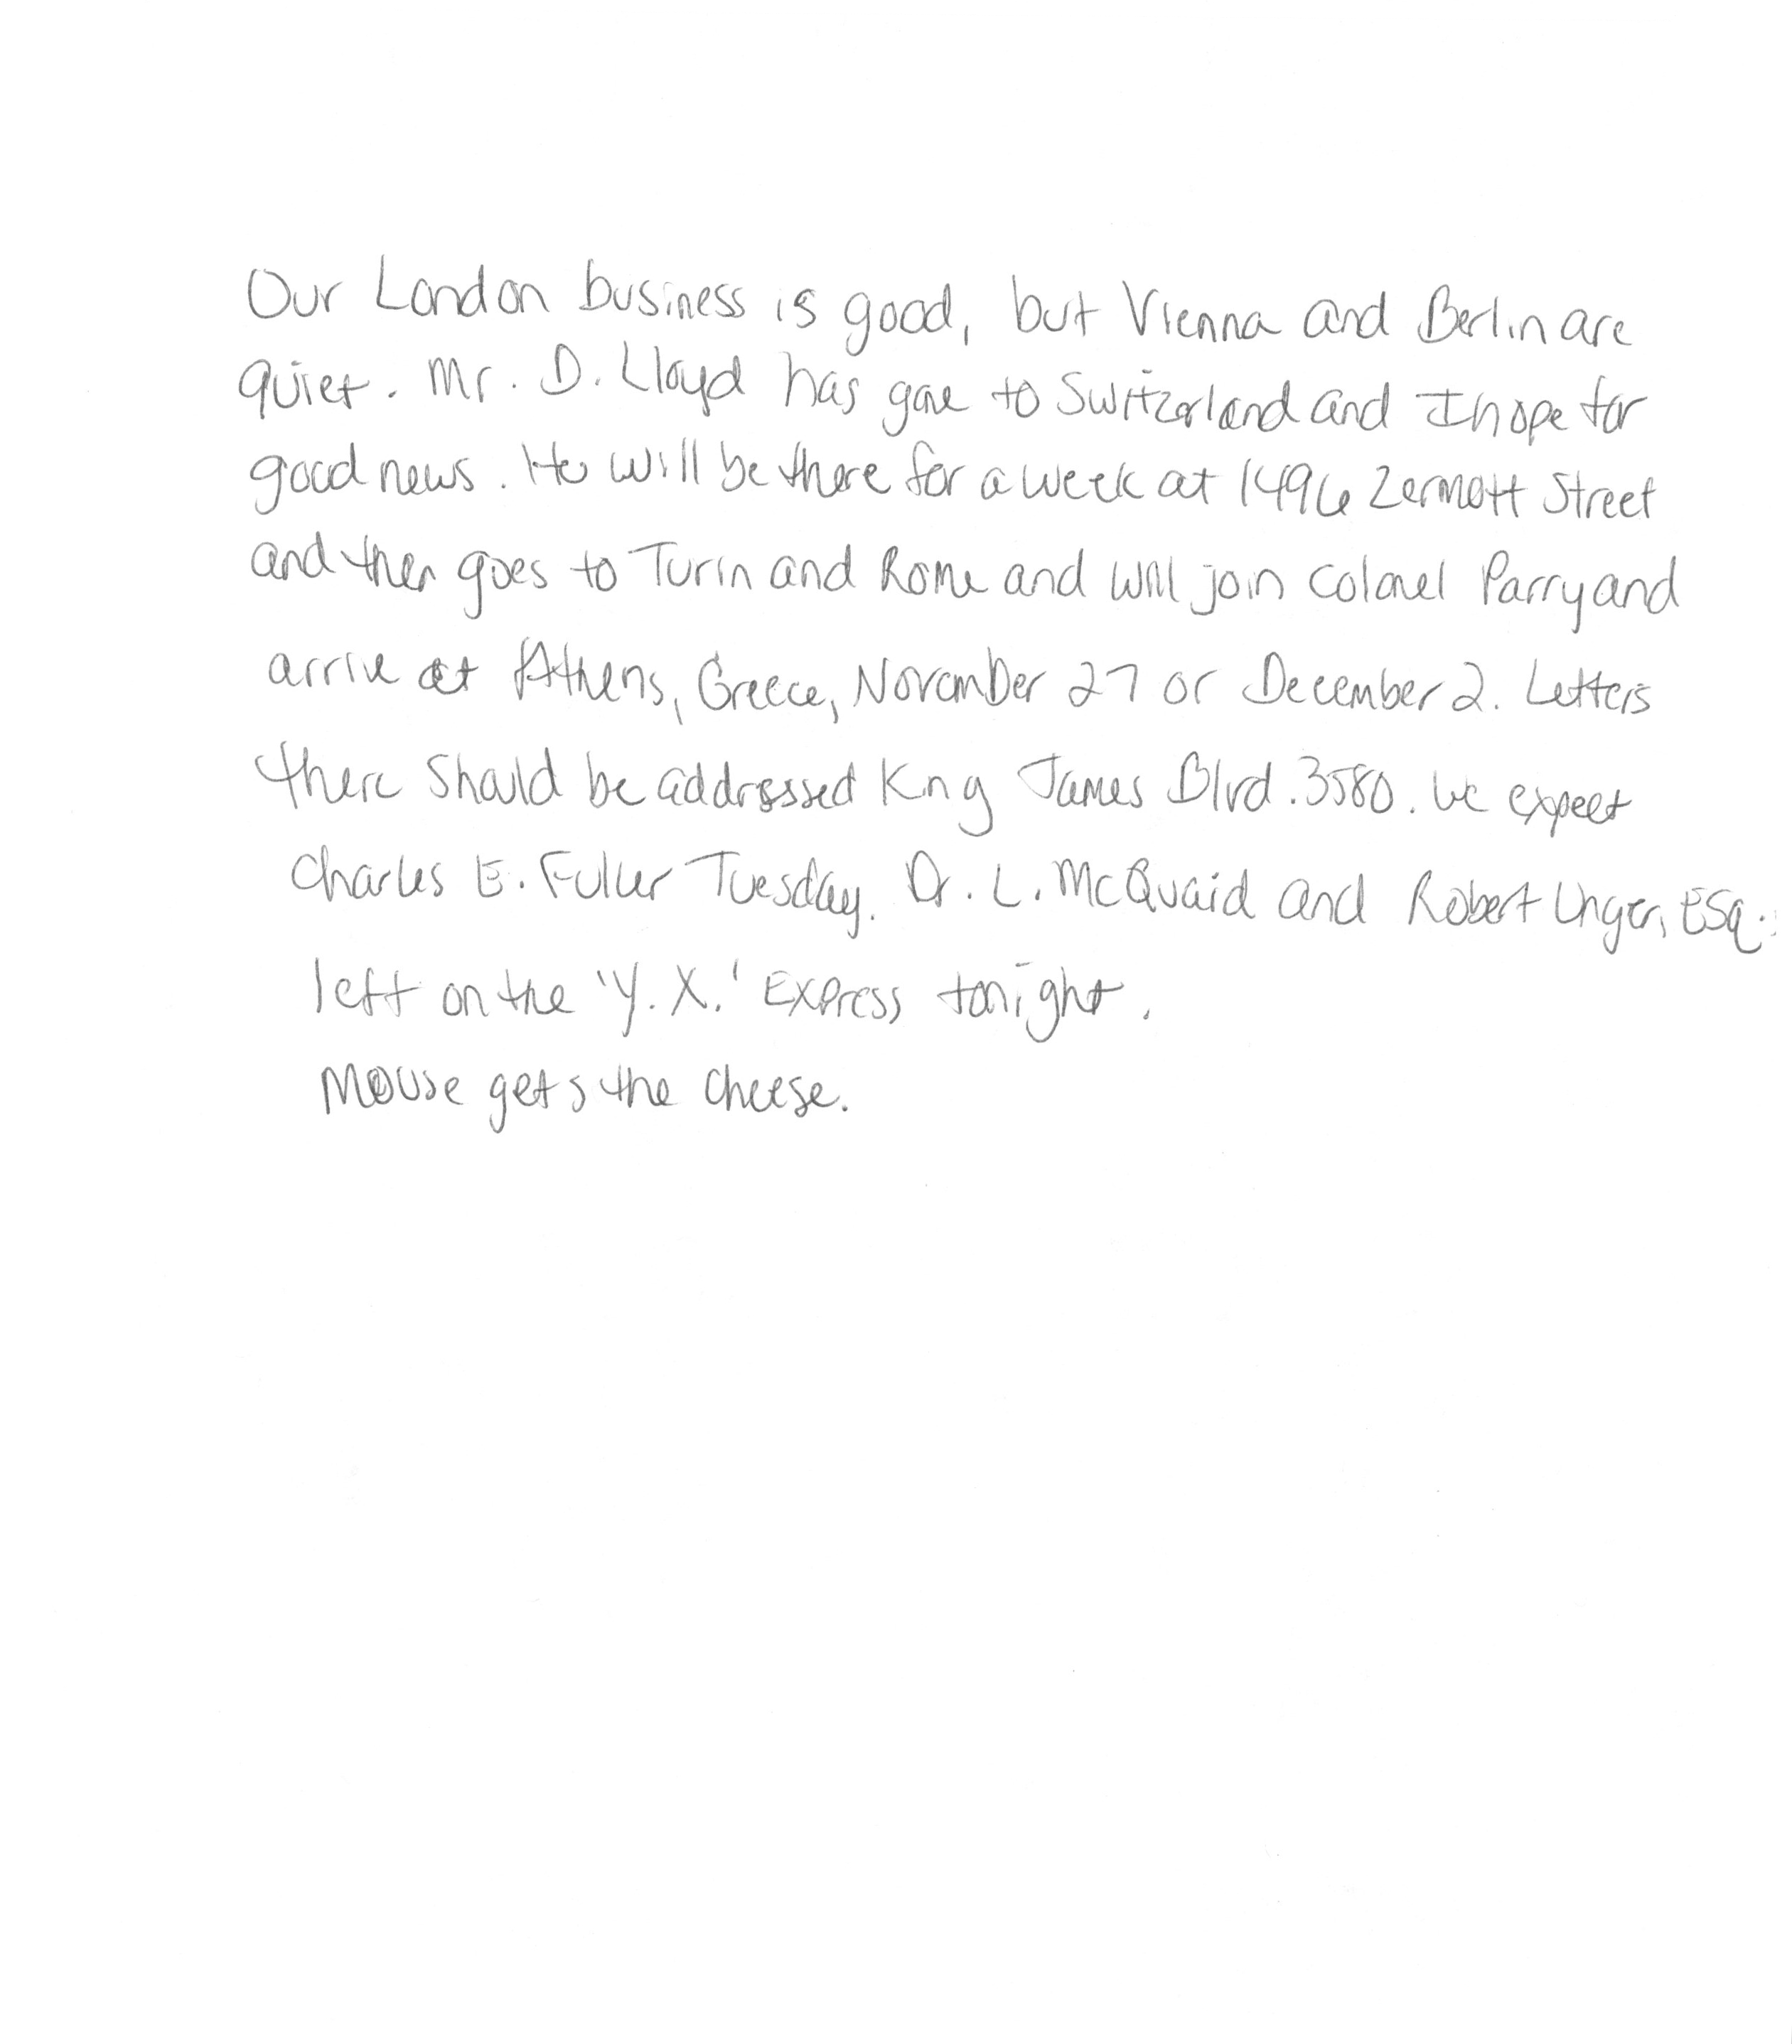 Our London business is good, but Vienna and Berlin are
quiet. Mr. D. Lloyd has gone to Switzerland and I hope for
good news. He will be there for a week at 1496 Zermott Street
and then goes to Turin and Rome and will join Colonel Parry and
arrive at Athens, Greece, November 27 or December 2. Letters
there should be addressed King James Blvd. 3580. We expect
Charles E. Fuller Tuesday. Dr. L. McQuaid and Robert Unger, Esq.,
left on the 'Y.X.' Express tonight.
Mouse gets the cheese.